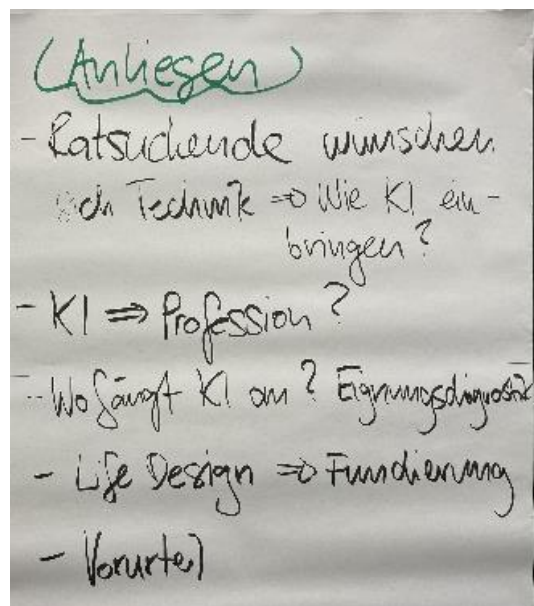 (Anliegen)
- Ratsuchende wünschen
sich Technik ⇒ Wie KI ein-
bringen?
- KI ⇒ Profession?
- Wo fängt KI an? Eignungsdiagnostik
- Life Design ⇒ Fundierung
- Vorurteil